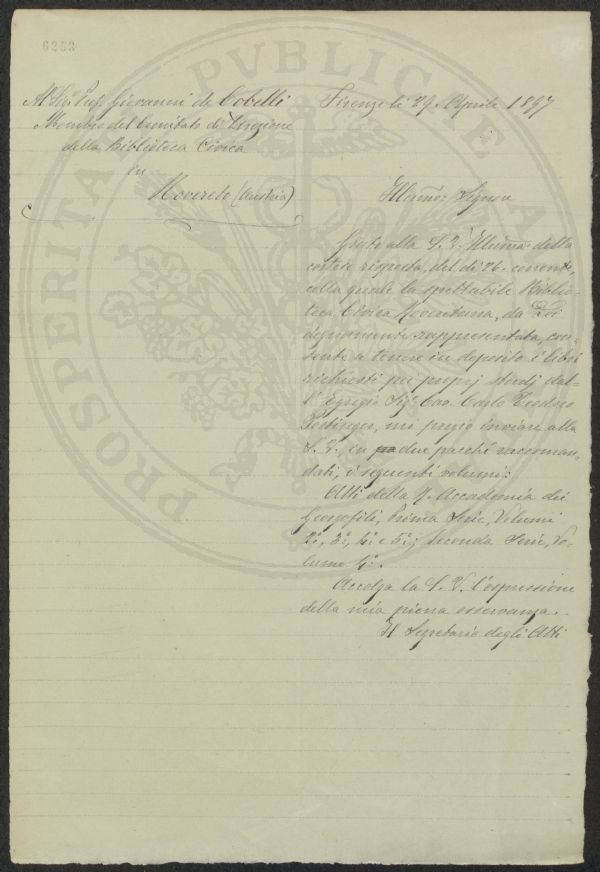 6253
Al Sig. Prof. Giovanni de Cobelli
Membro del Comitato di Direzione
della Biblioteca Civica
in
Rovereto (Austria)
Firenze li 29. Aprile 1897
Illmo: Signore
Grato alla S. V. Illma: della
cortese risposta, del dì 26. corrente,
colla quale la spettabile Biblio-
teca Civica Roveretana, da Lei
degnamente rappresentata, con-
sente a tenere in deposito i libri
richiesti pei proprj studj dal-
l'Egregio Sig. Cav. Carlo Teodoro
Postinger, mi pregio inviare alla
S. V., in due pacchi raccoman-
dati, i seguenti volumi:
Atti della R. Accademia dei
Georgofili, Prima Serie, Volumi
2°, 3°, 4° e 5°; Seconda Serie, Vo-
lume 4°.
Accolga la S. V. l'espressione
della mia piena osservanza.
Il Segretario degli Atti
PROSPERITATI PVBLICAE